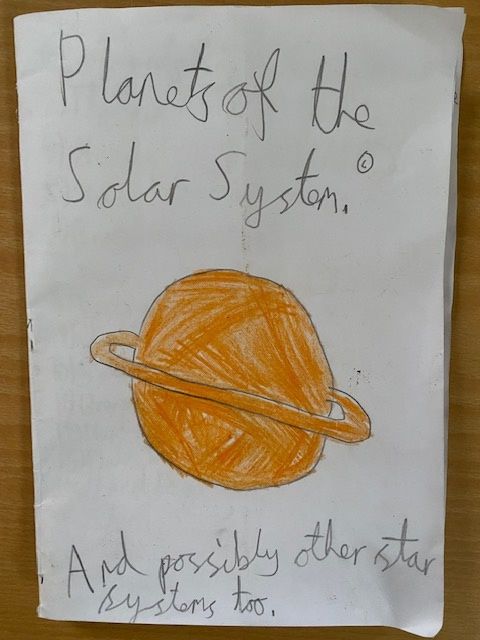 Planets of the
Solar System.©
And possibly other star
systems too.